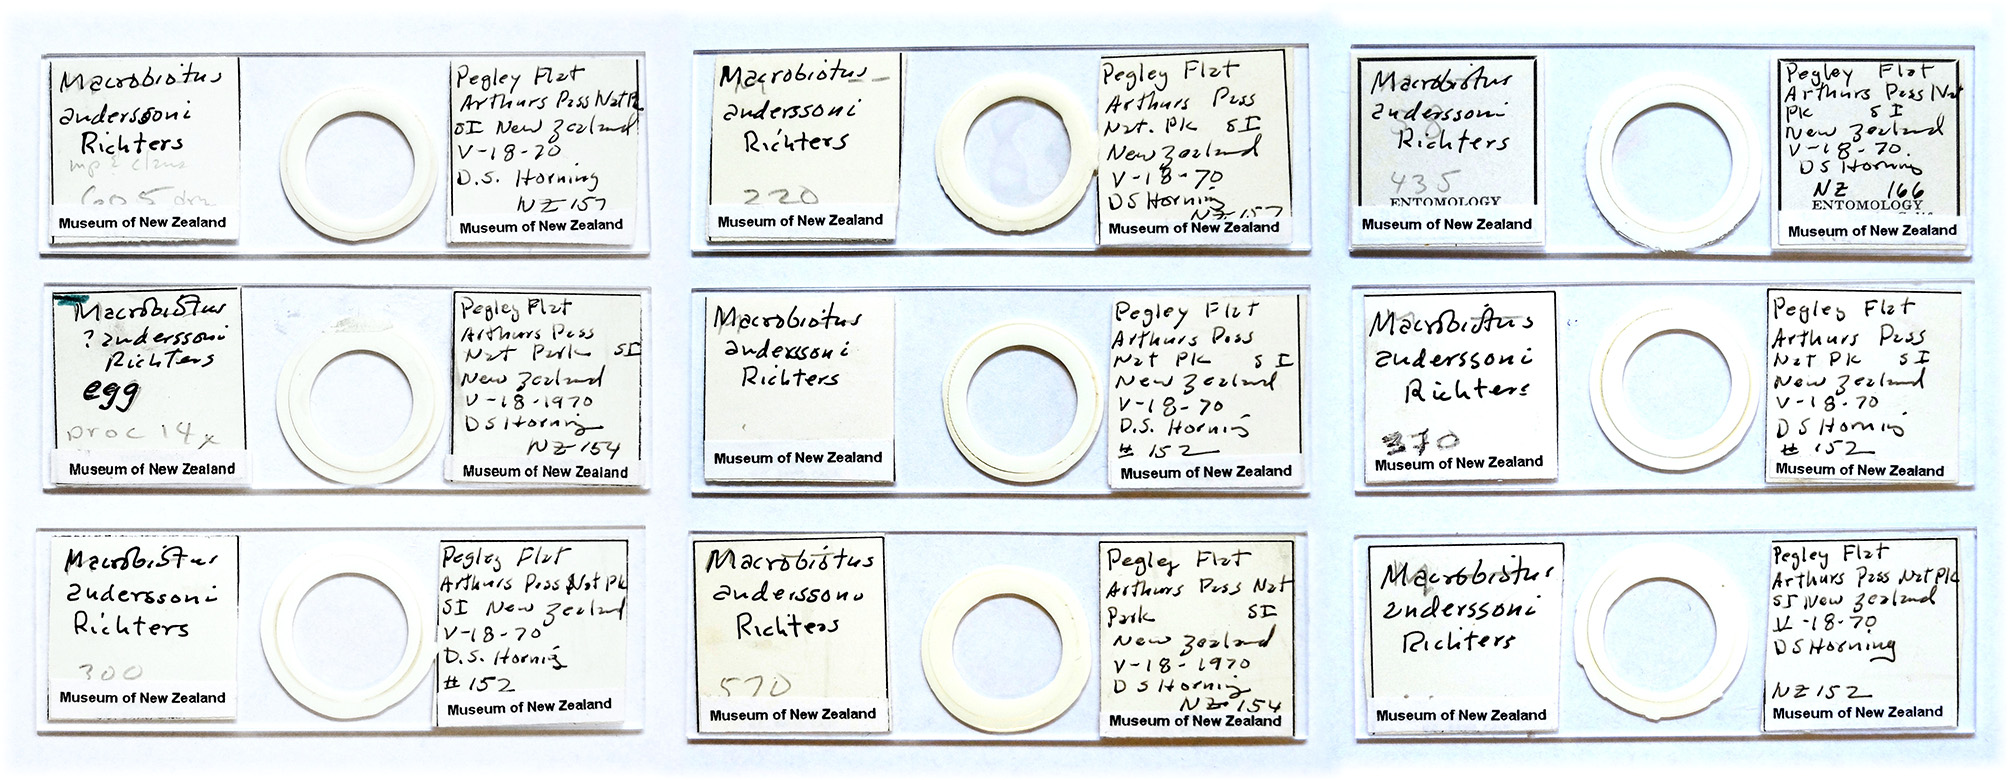 Macrobiotus
anderssoni
Richters
mp & claws
605 dm
Museum of New Zealand
Pegley Flat
Arthurs Pass Nat Pk
SI New Zealand
V-18-70
D.S. Horning
NZ 157
Museum of New Zealand
Macrobiotus
anderssoni
Richters
220
Museum of New Zealand
Pegley Flat
Arthurs Pass
Nat. Pk SI
New Zealand
V-18-70
DS Horning
NZ 157
Museum of New Zealand
Macrobiotus
anderssoni
Richters
435
ENTOMOLOGY
Museum of New Zealand
Pegley Flat
Arthurs Pass Nat
Pk SI
New Zealand
V-18-70.
DS Horning
NZ 166
ENTOMOLOGY
Museum of New Zealand
Macrobiotus
? anderssoni
Richters
egg
proc 14x
Museum of New Zealand
Pegley Flat
Arthurs Pass
Nat Park SI
New Zealand
V-18-1970
DS Horning
NZ 154
Museum of New Zealand
Macrobiotus
anderssoni
Richters
Museum of New Zealand
Pegley Flat
Arthurs Pass
Nat Pk SI
New Zealand
V-18-70
D.S. Horning
# 152
Museum of New Zealand
Macrobiotus
anderssoni
Richters
370
Museum of New Zealand
Pegley Flat
Arthurs Pass
Nat Pk SI
New Zealand
V-18-70
DS Horning
# 152
Museum of New Zealand
Macrobiotus
anderssoni
Richters
300
Museum of New Zealand
Pegley Flat
Arthurs Pass Nat Pk
SI New Zealand
V-18-70
D.S. Horning
# 152
Museum of New Zealand
Macrobiotus
anderssoni
Richters
570
Museum of New Zealand
Pegley Flat
Arthurs Pass Nat
Park SI
New Zealand
V-18-1970
DS Horning
NZ 154
Museum of New Zealand
Macrobiotus
anderssoni
Richters
Museum of New Zealand
Pegley Flat
Arthurs Pass Nat Pk
SI New Zealand
V-18-70
DS Horning
NZ 152
Museum of New Zealand